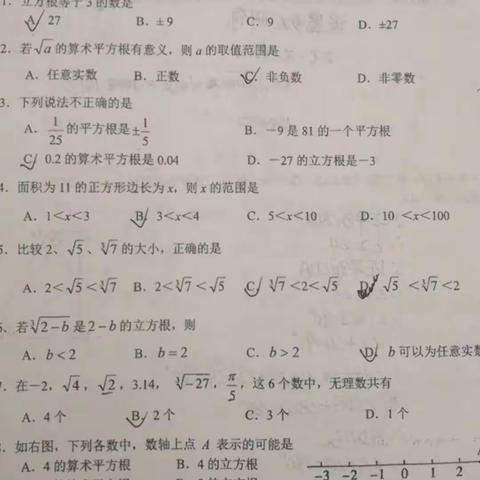 1. 立方根等于 3 的数是
A. 27 B. ±9 C. 9 D. ±27
2. 若√a 的算术平方根有意义，则 a 的取值范围是
A. 任意实数 B. 正数 C. 非负数 D. 非零数
3. 下列说法不正确的是
A. 1/25 的平方根是±1/5 B. −9 是 81 的一个平方根
C. 0.2 的算术平方根是 0.04 D. −27 的立方根是−3
4. 面积为 11 的正方形边长为 x，则 x 的范围是
A. 1<x<3 B. 3<x<4 C. 5<x<10 D. 10 <x<100
5. 比较 2、√5 、∛7 的大小，正确的是
A. 2<√5<∛7 B. 2<∛7<√5 C. ∛7<2<√5 D. √5 <∛7<2
6. 若∛2−b 是 2−b 的立方根，则
A. b<2 B. b=2 C. b>2 D. b 可以为任意实数
7. 在−2，√4，√2，3.14， ∛−27，π/5，这 6 个数中，无理数共有
A. 4 个 B. 2 个 C. 3 个 D. 1 个
8. 如右图，下列各数中，数轴上点 A 表示的可能是
A. 4 的算术平方根 B. 4 的立方根
−3 −2 −1 0 1 2